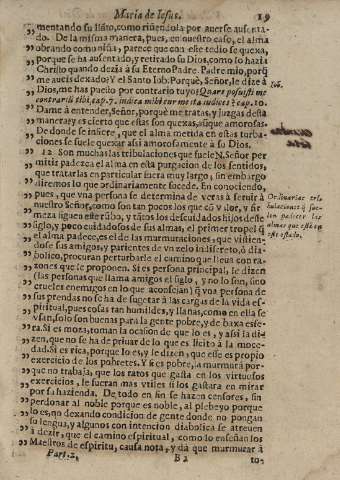 Maria de Iesus. 19
mentando su llãto, como riñendola por auerse ausenta-
do. De la misma manera, pues, en nuestro caso, el alma
obrando como niña, parece que con este tedio se quexa,
porque se ha ausentado, y retirado su Dios, como lo hazia
Christo quando dezia à su Eterno Padre. Padre mio, porq̃
me aueis dexado? Y el Santo Iob: Porquè, Señor, le dize à
Dios, me has puesto por contrario tuyo? Quare posuisti me
contrariũ tibi, cap. 7. indica mihi cur me ita iudices? cap. 10.
Dame à entender, Señor, porquè me tratas, y juzgas desta
manera? y es cierto que estas son quexas, aũque amorosas.
De donde se infiere, que el alma metida en estas turba-
ciones se suele quexar assi amorosamente à su Dios.
12 Son muchas las tribulaciones que suele N. Señor per-
mitir padezca el alma en esta purgacion de los sentidos,
que tratarlas en particular fuera muy largo, sin embargo
diremos lo que ordinariamente sucede. En conociendo,
pues, que vna persona se determina de veras à seruir à
nuestro Señor, como son tan pocos los que cõ valor, y fir-
meza siguen este rũbo, y tãtos los descuidados hijos deste
siglo, y poco cuidadosos de sus almas, el primer tropel q̃
el alma padece, es el de las murmuraciones, que vistien-
dose los amigos, y parientes de vn zelo indiscreto, ò dia-
bolico, procuran perturbarle el camino que lleua con ra-
zones que le proponen. Si es persona principal, le dizen
(las personas que llama amigos el siglo, y no lo son, sino
crueles enemigos en lo que aconsejan) q̃ vna persona de
sus prendas no se ha de sugetar à las cargas de la vida es-
piritual, pues cosas tan humildes, y llanas, como en ella se
vsan, solo son buenas para la gente pobre, y de baxa esfe-
ra. Si es moza, toman la ocasion de que lo es, y assi la di-
zen, que no se ha de priuar de lo que es licito à la moce-
dad. Si es rica, porque lo es, y le dizen, que esse es propio
exercicio de los pobretes. Y si es pobre, la murmura por-
que no trabaja, que los ratos que gasta en los virtuosos
exercicios, le fueran mas vtiles si los gastara en mirar
por su hazienda. De todo en fin se hazen censores, sin
perdonar al noble porque es noble, al plebeyo porque
lo es, no dexando condicion de gente donde no pongan
su lengua, y algunos con intencion diabolica se atreuen
à dezir, que el camino espiritual, como lo enseñan los
Maestros de espiritu, causa nota, y dà que murmurar à
Part. 2. B 2 to-
Iob.
Ordinarias tri-
bulaciones q̃ sue-
len padecer las
almas que estã en
este estado.